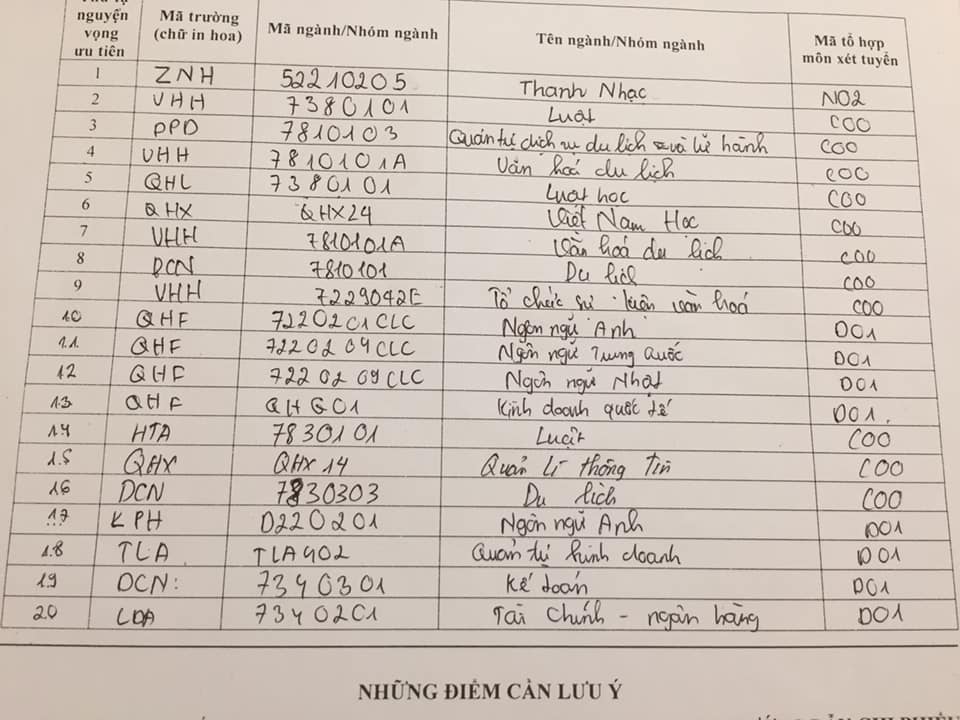 nguyện vọng ưu tiên | Mã trường (chữ in hoa) | Mã ngành/Nhóm ngành | Tên ngành/Nhóm ngành | Mã tổ hợp môn xét tuyển
1 ZNH 52210205 Thanh Nhạc N02
2 VHH 7380101 Luật C00
3 DPD 7810103 Quản tị dịch vụ du lịch và lữ hành C00
4 VHH 7810101A Văn hoá du lịch C00
5 QHL 7380101 Luật học C00
6 QHX QHX24 Việt Nam Học C00
7 VHH 7810101A Văn hoá du lịch C00
8 DCN 7810101 Du lịch C00
9 VHH 7229042E Tổ chức sự kiện văn hoá C00
10 QHF 7220201CLC Ngôn ngữ Anh D01
11 QHF 7220204CLC Ngôn ngữ Trung Quốc D01
12 QHF 7220209CLC Ngôn ngữ Nhật D01
13 QHF QHG01 Kinh doanh quốc tế D01.
14 HTA 7830101 Luật C00
15 QHX QHX14 Quản lí thông Tin C00
16 DCN 7830303 Du lịch C00
17 KPH D220201 Ngôn ngữ Anh D01
18 TLA TLA402 Quản tị kinh doanh D01
19 DCN: 7340301 Kế toán D01
20 LDA 7340201 Tài Chính - ngân hàng D01
NHỮNG ĐIỂM CẦN LƯU Ý